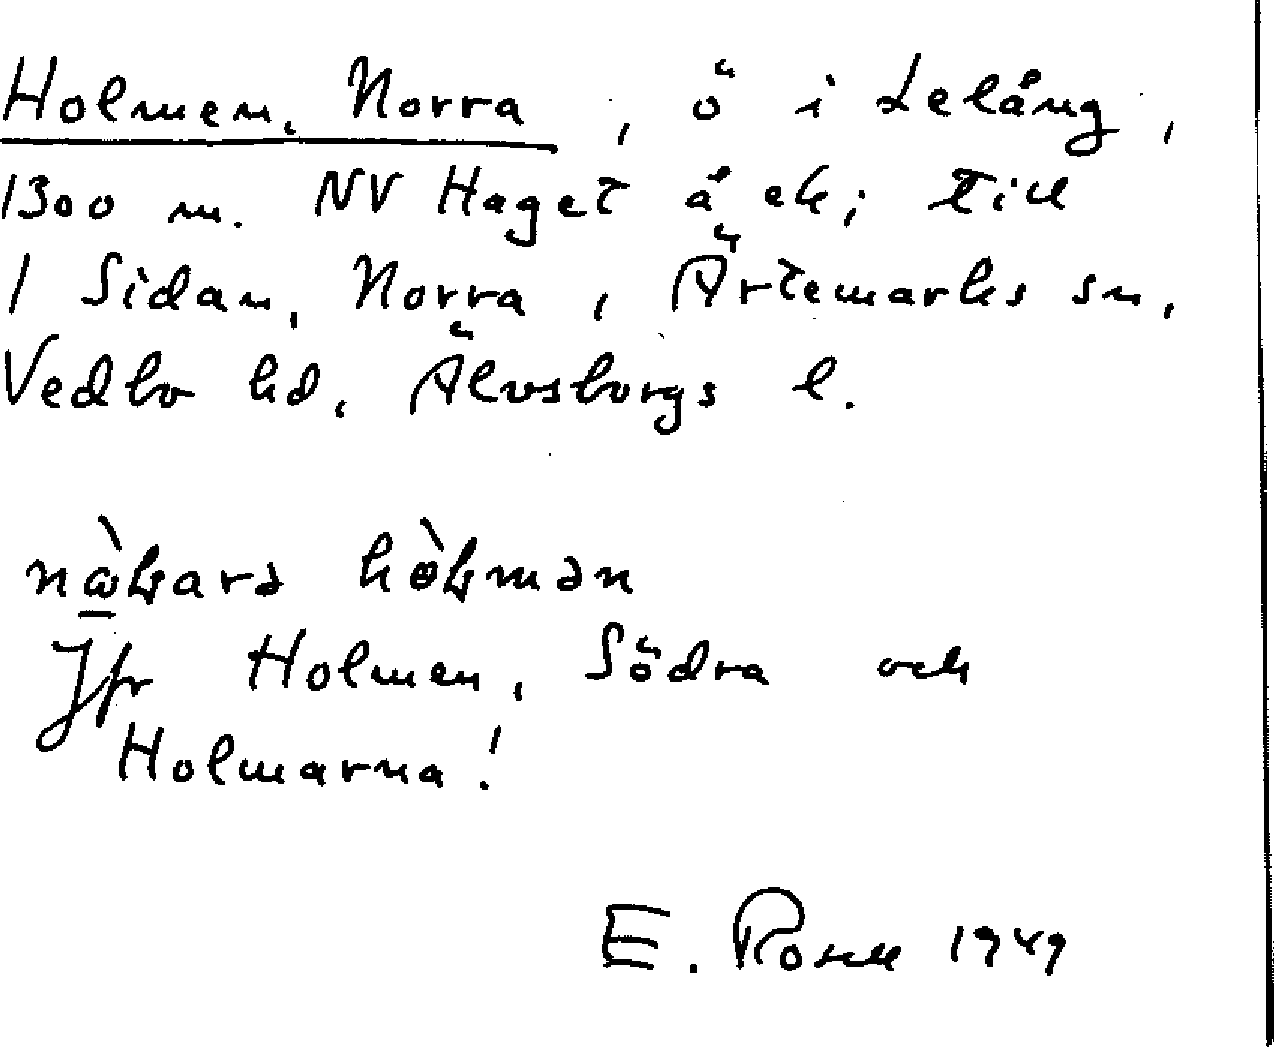 Holmen, Norra, ö i Lelång,
1300 m. NV Haget å ek; till
1 Sidan, Norra, Ärtemarks sn,
Vedbo hd, Älvsborgs l.
Jfr Holmen, Södra och
Holmarna!
E. Rosell 1949